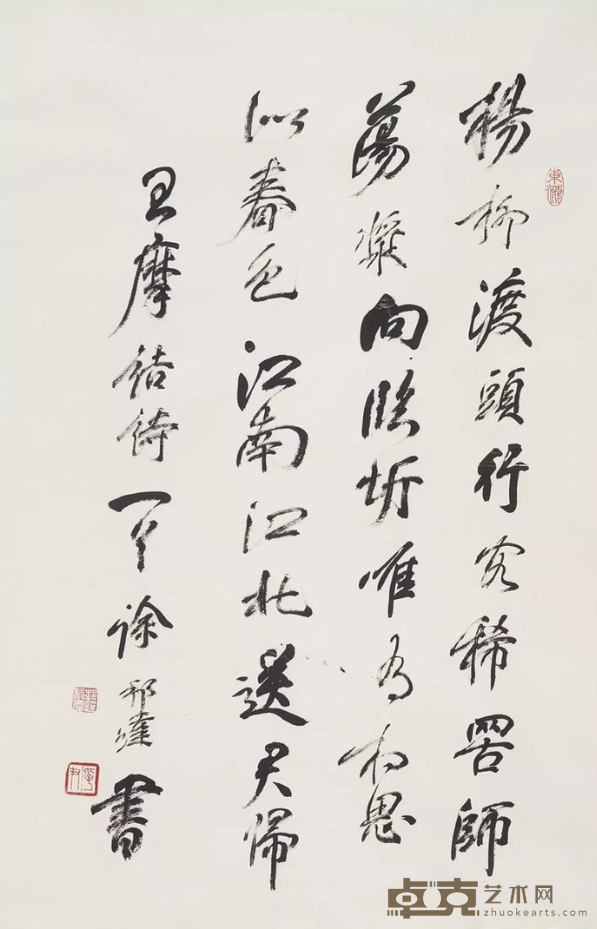 楊柳渡頭行客稀罟師
蕩槳向臨圻唯有相思
似春色江南江北送君歸
王摩詰詩一首徐邦達書
卓克艺术网
zhuokearts.com